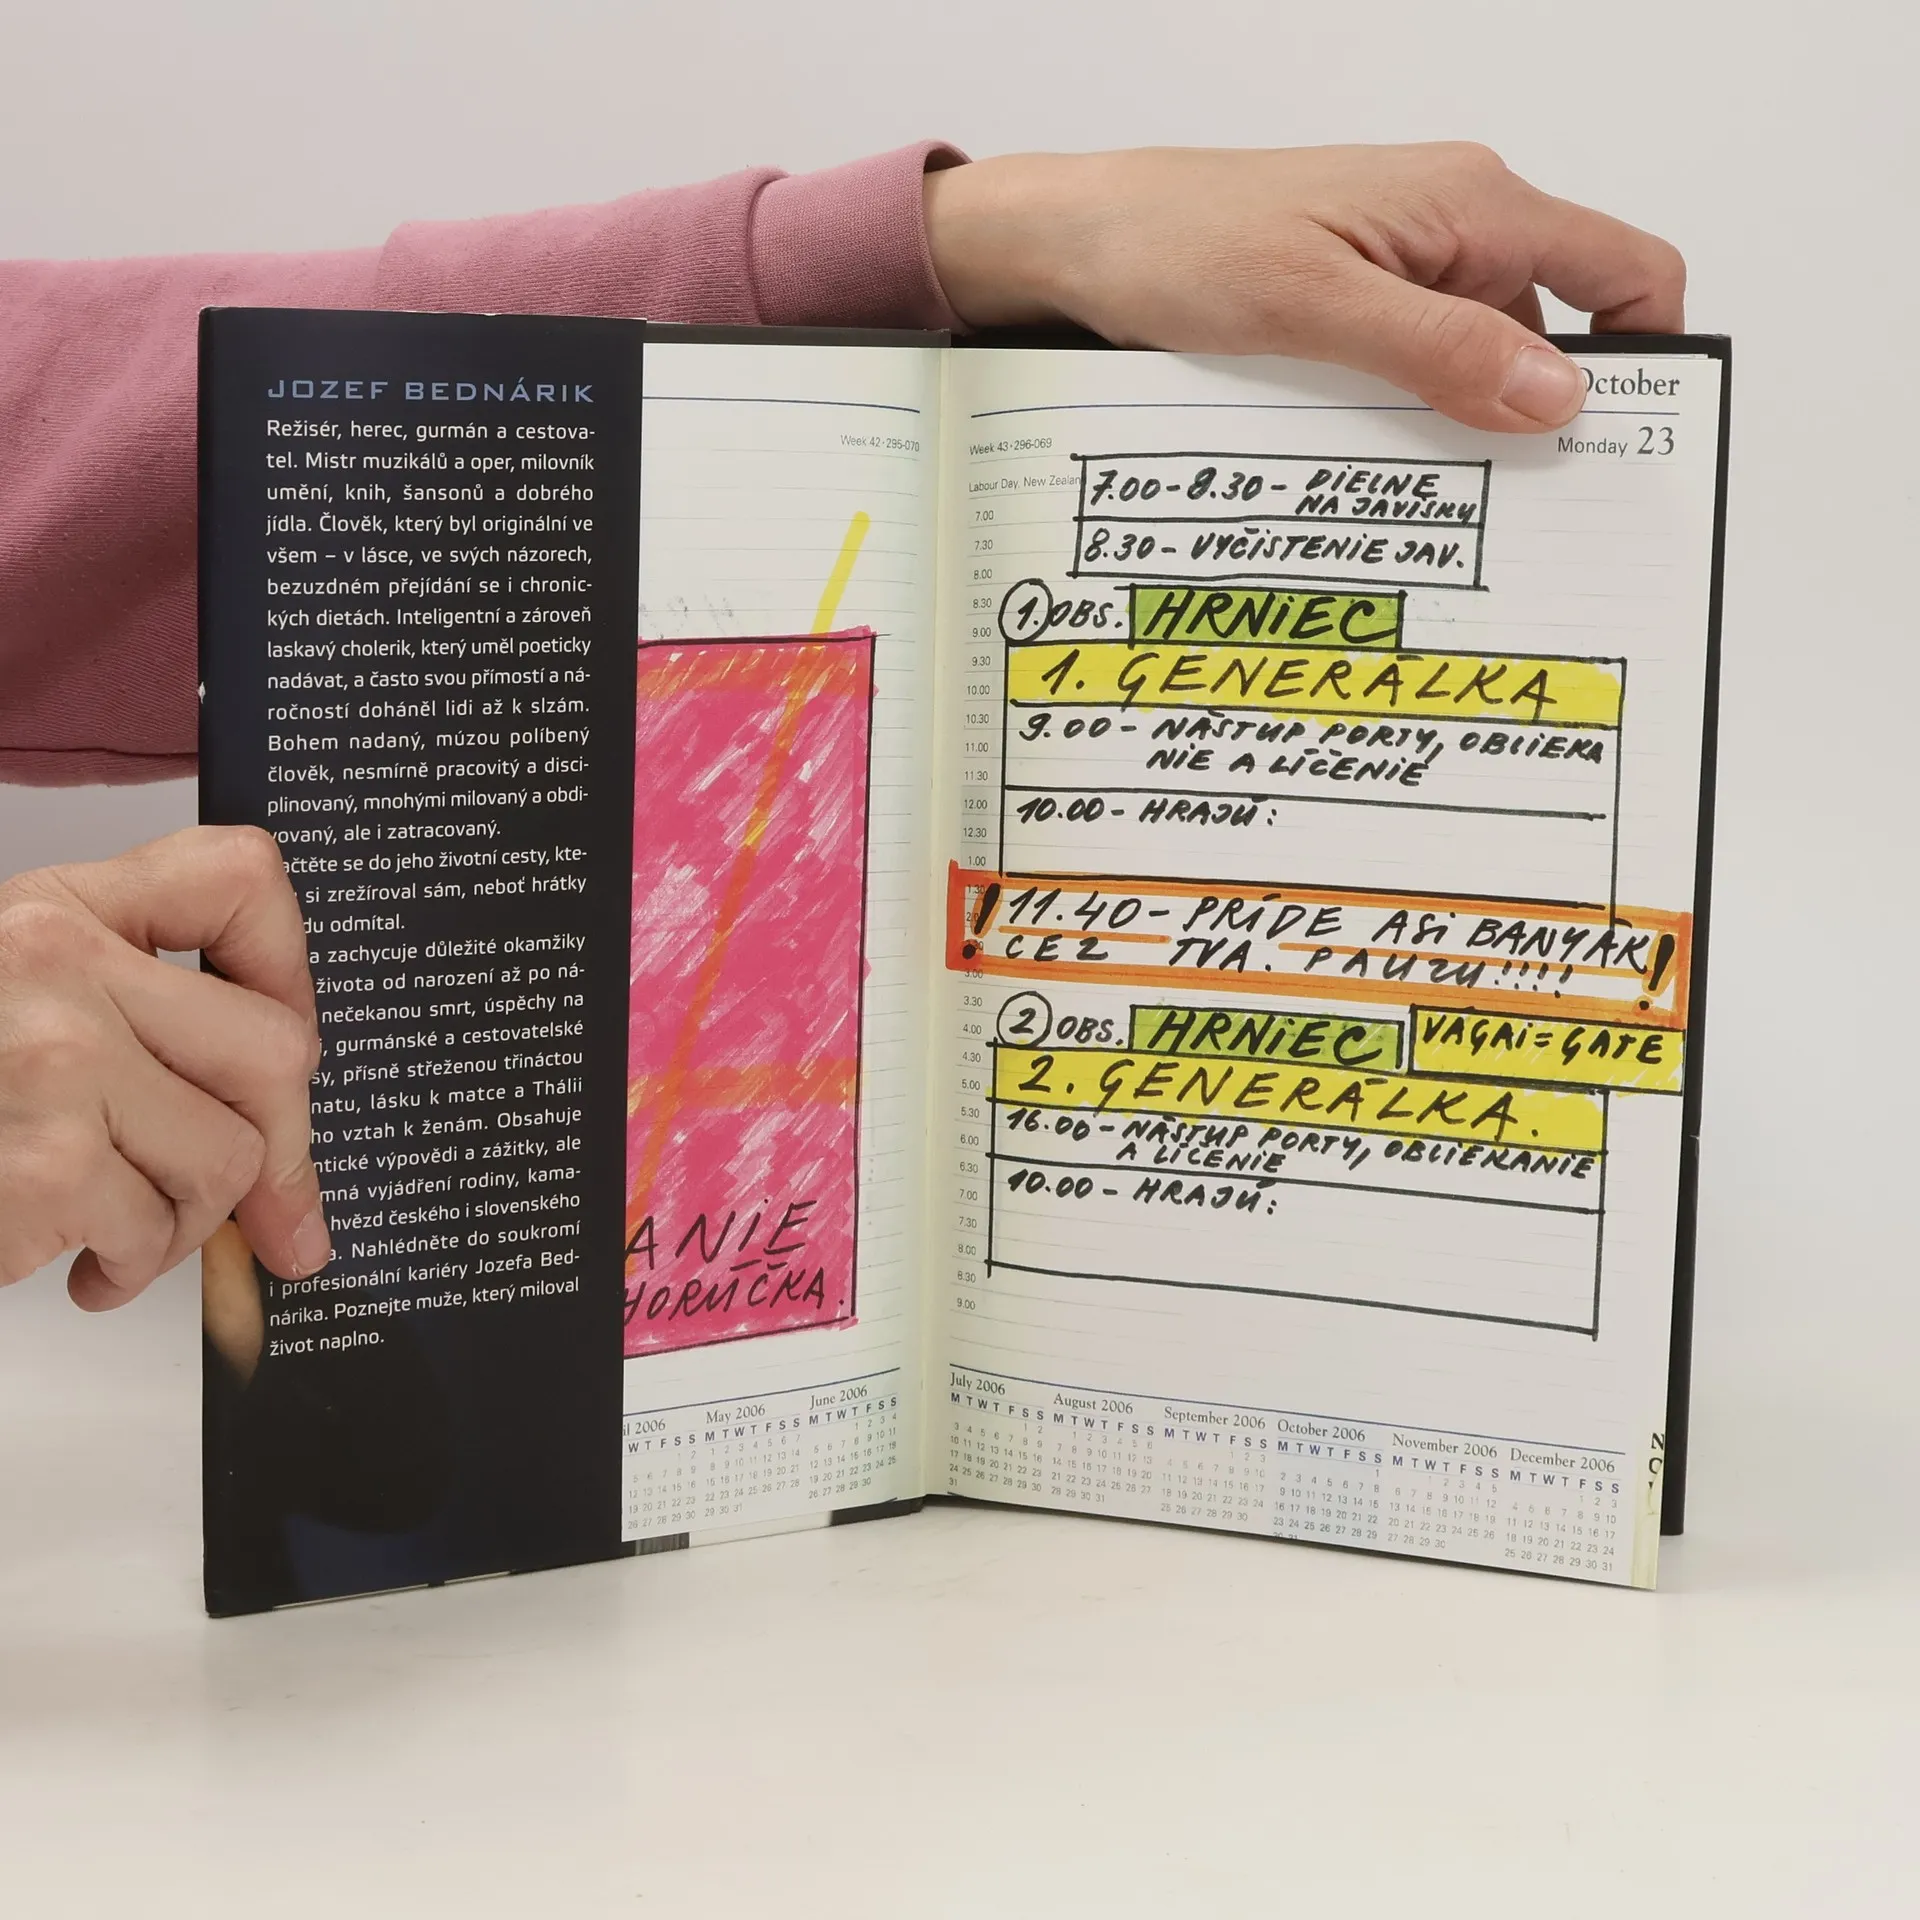 JOZEF BEDNÁRIK
Režisér, herec, gurmán a cestova-
tel. Mistr muzikálů a oper, milovník
umění, knih, šansonů a dobrého
jídla. Člověk, který byl originální ve
všem – v lásce, ve svých názorech,
bezuzdném přejídání se i chronic-
kých dietách. Inteligentní a zároveň
laskavý cholerik, který uměl poeticky
nadávat, a často svou přímostí a ná-
ročností doháněl lidi až k slzám.
Bohem nadaný, múzou políbený
člověk, nesmírně pracovitý a disci-
plinovaný, mnohými milovaný a obdi-
vovaný, ale i zatracovaný.
ačtěte se do jeho životní cesty, kte-
si zrežíroval sám, neboť hrátky
du odmítal.
a zachycuje důležité okamžiky
života od narození až po ná-
nečekanou smrt, úspěchy na
i, gurmánské a cestovatelské
sy, přísně střeženou třináctou
natu, lásku k matce a Thálii
ho vztah k ženám. Obsahuje
ntické výpovědi a zážitky, ale
mná vyjádření rodiny, kama-
hvězd českého i slovenského
a. Nahlédněte do soukromí
i profesionální kariéry Jozefa Bed-
nárika. Poznejte muže, který miloval
život naplno.
Week 42 · 295-070
ANIE
HORÚČKA.
il 2006
May 2006
June 2006
October
Monday 23
Week 43 · 296-069
Labour Day, New Zealan
7.00 - 8.30 - DIELNE
NA JAVISKU
8.30 - VYČISTENIE JAV.
1. OBS. HRNIEC
1. GENERÁLKA
9.00 - NÁSTUP PORTY, OBLIEKA
NIE A LÍČENIE
10.00 - HRAJÚ:
! 11.40 - PRÍDE ASI BANYÁK !
CEZ TVA. PAUZU!!!!
2 OBS. HRNIEC VÁGAI = GATE
2. GENERÁLKA.
16.00 - NÁSTUP PORTY, OBLIEKANIE
A LÍČENIE
10.00 - HRAJÚ:
7.00
7.30
8.00
8.30
9.00
9.30
10.00
10.30
11.00
11.30
12.00
12.30
1.00
1.30
3.00
3.30
4.00
4.30
5.00
5.30
6.00
6.30
7.00
7.30
8.00
8.30
9.00
July 2006
August 2006
September 2006
October 2006
November 2006
December 2006